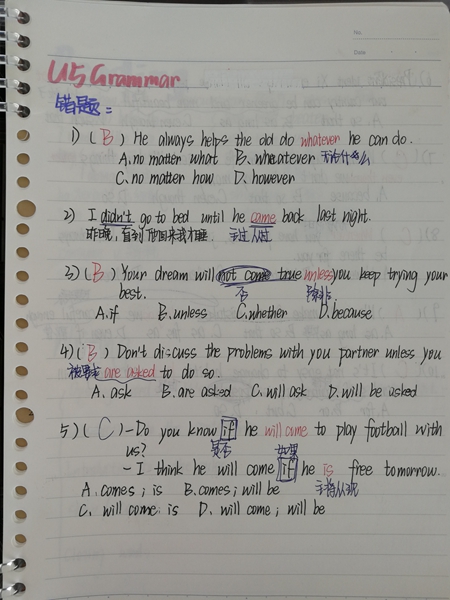 No.
Date
U5 Grammar
错题:
1) (B) He always helps the old do whatever he can do.
A. no matter what B. whatever 无论什么
C. no matter how D. however
2) I didn't go to bed until he came back last night.
昨晚,直到他回来我才睡 主过从过
3) (B) Your dream will not come true unless you keep trying your
否 除非
best.
A. if B. unless C. whether D. because
4) (B) Don't discuss the problems with you partner unless you
被要求 are asked to do so.
A. ask B. are asked C. will ask D. will be asked
5) (C) - Do you know if he will come to play football with
us? 是否 如果
- I think he will come if he is free tomorrow.
A. comes; is B. comes; will be 主将从现
C. will come; is D. will come; will be